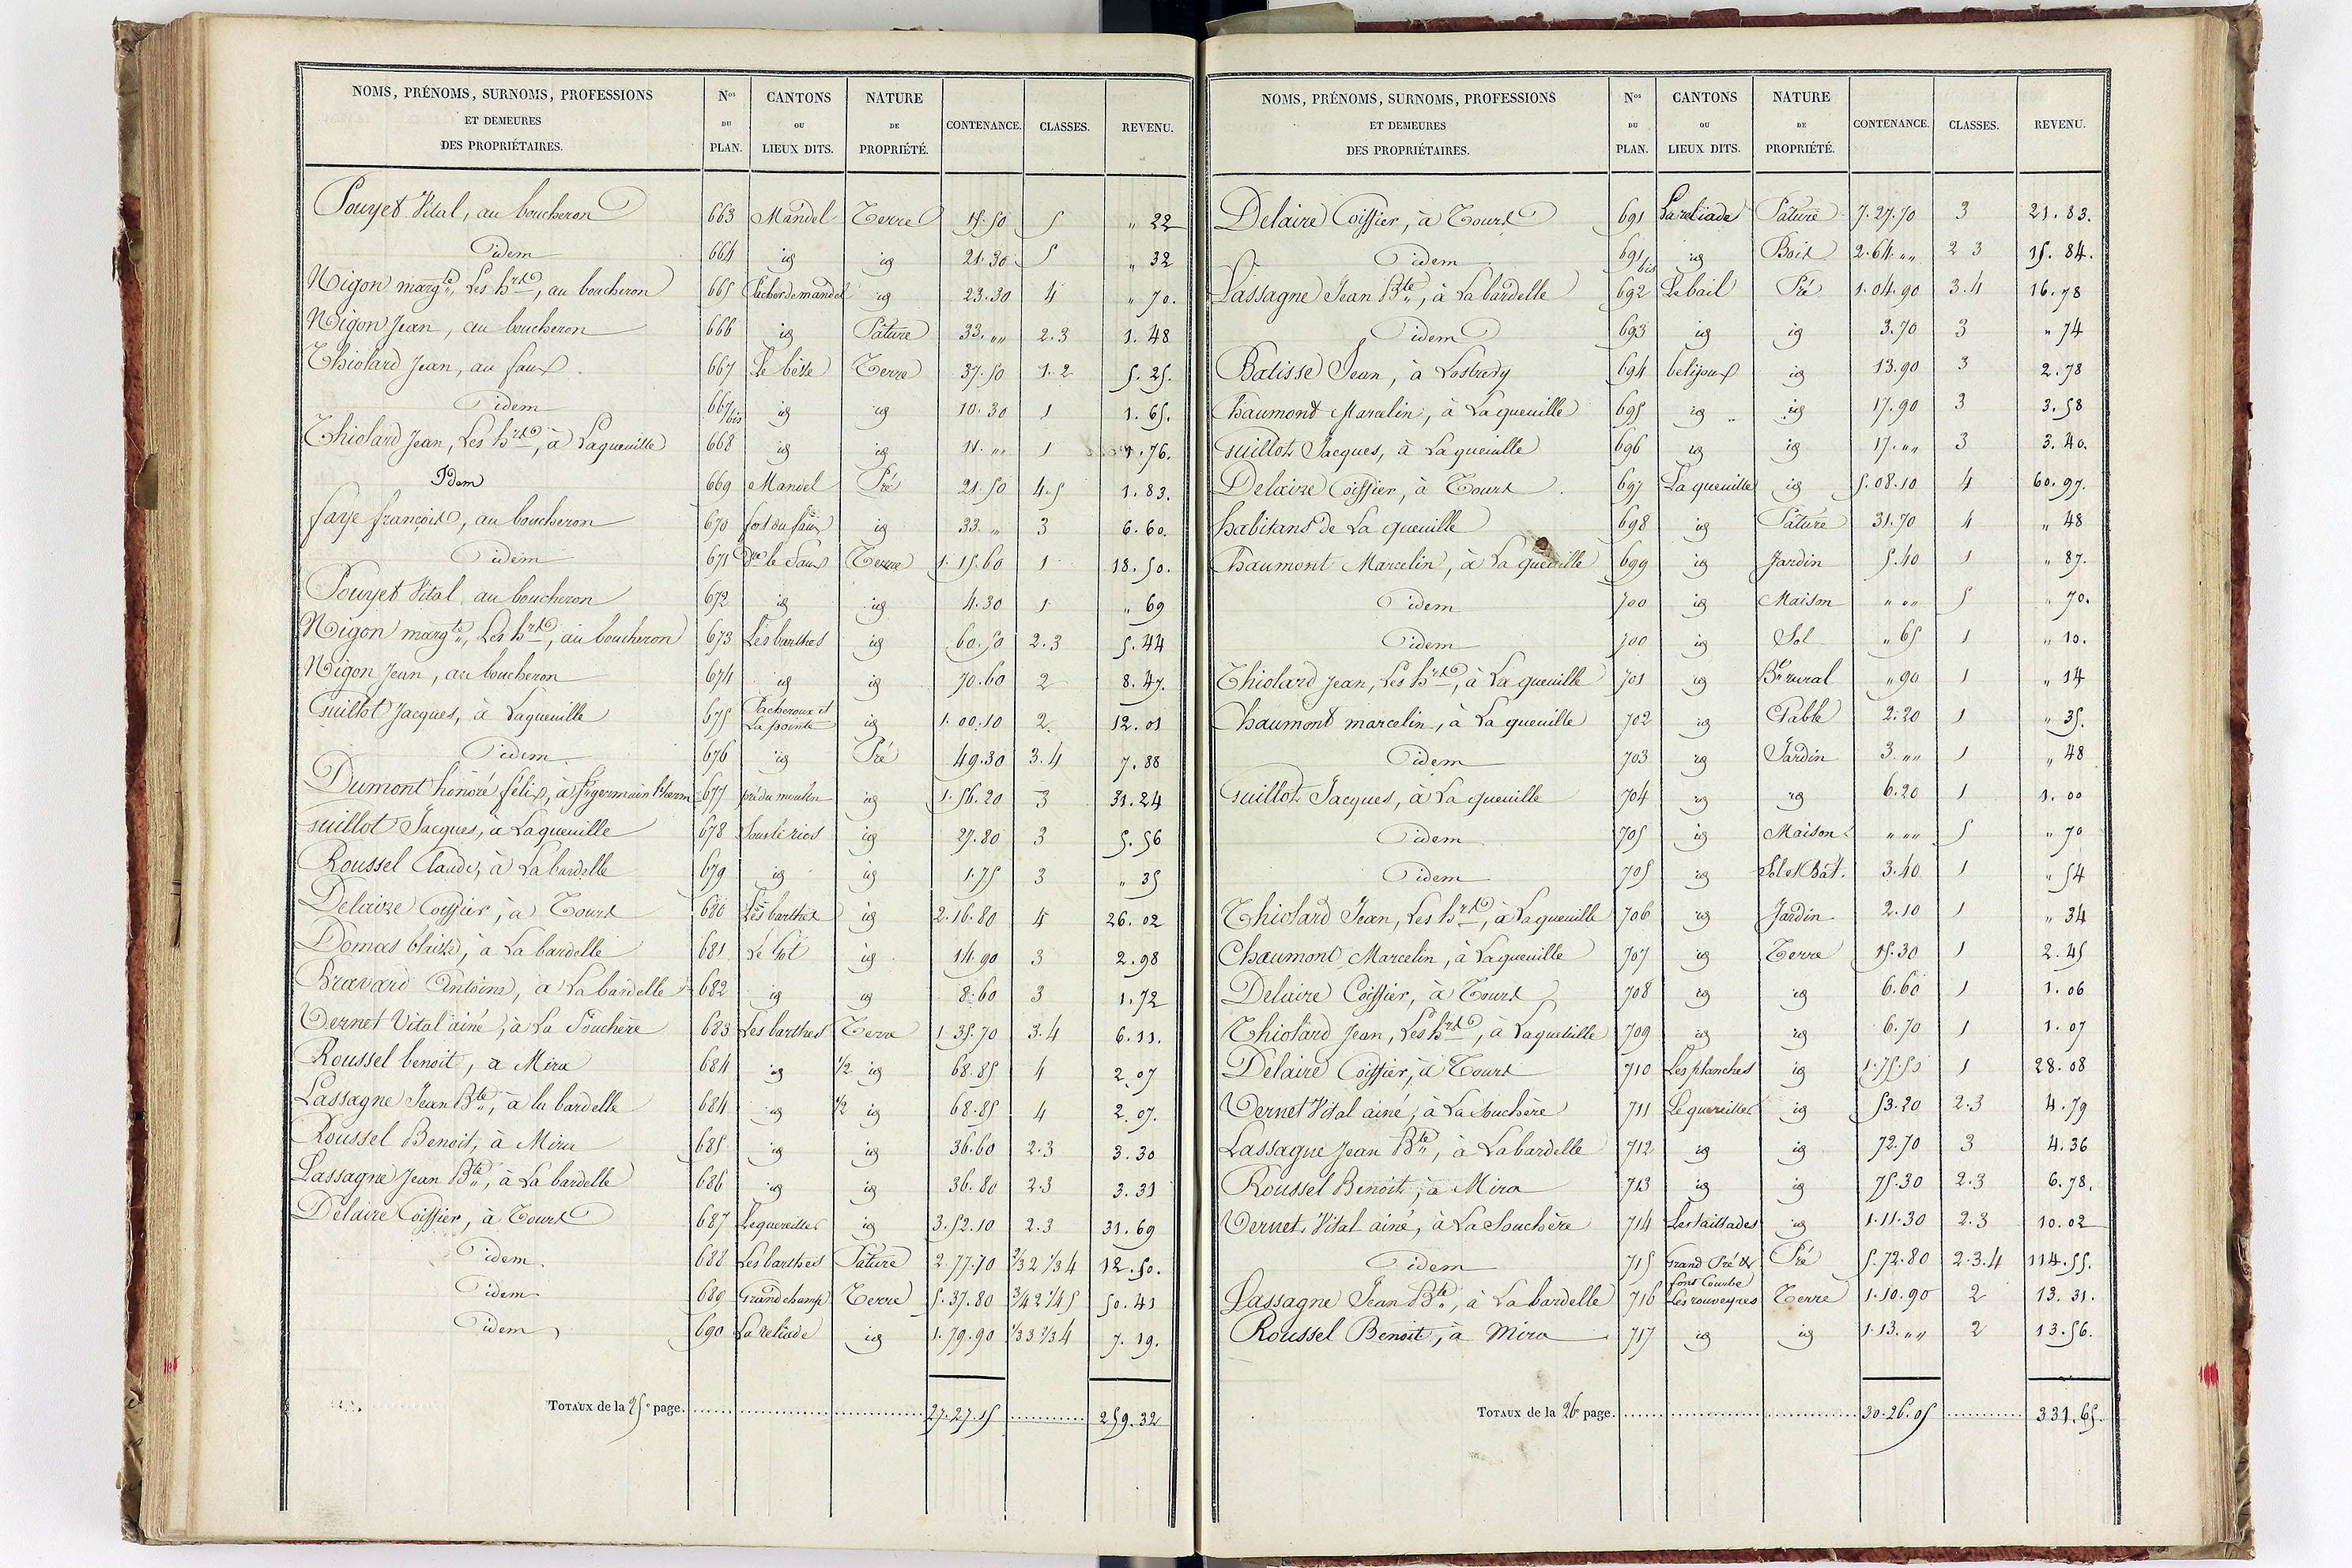 NOMS, PRÉNOMS, SURNOMS, PROFESSIONS ET DEMEURES DES PROPRIÉTAIRES. Nos DU PLAN. CANTONS OU LIEUX DITS. NATURE DE PROPRIÉTÉ. CONTENANCE. CLASSES. REVENU.
Pouyet Vital, au boucheron 663 Mandel Terre 15.50 5 " 22
idem 664 id id 21.30 5 " 32
Nigon margte, Les hrs, au boucheron 665 Pacher de mandel id 23.30 4 " 70.
Nigon Jean, au boucheron 666 id Pâture 33. "" 2.3 1.48
Thiolard Jean, au faux 667 Le bësse Terre 37.50 1.2 5.25.
idem 667 bis id id 10.30 1 1.65.
Thiolard Jean, Les hrs, à Laqueuille 668 id id 11. "" 1 1.76.
Idem 669 Mandel Pré 21.50 4.5 1.83.
faye françois, au boucheron 670 fort du faux id 33. " 3 6.60.
idem 671 le Faux Terre 1.15.60 1 18.50.
Pouyet Vital, au boucheron 672 id id 4.30 1 " 69
Nigon margte, Les hrs, au boucheron 673 Les barthes id 60.50 2.3 5.44
Nigon Jean, au boucheron 674 id id 70.60 2 8.47.
Guillot Jacques, à Laqueuille 675 Pacheroux et La pointe id 1.00.10 2 12.01
idem 676 id Pré 49.30 3.4 7.88
Dumont honoré félix, à St germain l'herm 677 pré du moulin id 1.56.20 3 31.24
Guillot Jacques, à Laqueuille 678 Sous le rios id 27.80 3 5.56
Roussel Claude, à Labardelle 679 id id 1.75 3 " 35
Delaire Coiffier, à Tours 680 Les barthes id 2.16.80 4 26.02
Domas blaise, à La bardelle 681 Le Got id 14.90 3 2.98
Bravard Antoine, à La bardelle 682 id id 8.60 3 1.72
Vernet Vital ainé, à La Souchère 683 Les barthes Terre 1.35.70 3.4 6.11.
Roussel benoit, à Mira 684 id 1/2 id 68.85 4 2.07
Lassagne Jean Bte, à la bardelle 684 id 1/2 id 68.85 4 2.07.
Roussel Benoit, à Mira 685 id id 36.60 2.3 3.30
Lassagne Jean Bte, à La bardelle 686 id id 36.80 2.3 3.31
Delaire Coiffier, à Tours 687 Lequereilles id 3.52.10 2.3 31.69
idem 688 Les barthes Pâture 2.77.70 2/3 2 1/3 4 12.50.
idem 689 Grand champ Terre 5.37.80 3/4 2 1/4 5 50.41
idem 690 La reliade id 1.79.90 1/3 3 2/3 4 7.19.
TOTAUX de la 25e page. 27.27.15 259.32
NOMS, PRÉNOMS, SURNOMS, PROFESSIONS ET DEMEURES DES PROPRIÉTAIRES. Nos DU PLAN. CANTONS OU LIEUX DITS. NATURE DE PROPRIÉTÉ. CONTENANCE. CLASSES. REVENU.
Delaire Coiffier, à Tours 691 La reliade Pâture 7.27.70 3 21.83.
idem 691 bis id Bois 2.64. "" 2 3 15.84.
Lassagne Jean Bte, à La bardelle 692 Le bail Pré 1.04.90 3.4 16.78
idem 693 id id 3.70 3 " 74
Batisse Jean, à Losbredy 694 betijoux id 13.90 3 2.78
Chaumont Marcelin, à Laqueuille 695 id id 17.90 3 3.58
Guillot Jacques, à Laqueuille 696 id id 17. "" 3 3.40.
Delaire Coiffier, à Tours 697 Laqueuille id 5.08.10 4 60.97.
habitans de La queuille 698 id Pâture 31.70 4 " 48
Chaumont Marcelin, à La queuille 699 id Jardin 5.40 1 " 87.
idem 700 id Maison " "" 5 " 70.
idem 700 id Sol " 65 1 " 10.
Thiolard Jean, Les hrs, à La queuille 701 id Bt rural " 90 1 " 14
Chaumont marcelin, à La queuille 702 id Etable 2.20 1 " 35.
idem 703 id Jardin 3. "" 1 " 48
Guillot Jacques, à La queuille 704 id id 6.20 1 1.00
idem 705 id Maison " "" 5 " 70
idem 705 id Sol et Bât. 3.40 1 " 54
Thiolard Jean, Les hrs, à Laqueuille 706 id Jardin 2.10 1 " 34
Chaumont Marcelin, à Laqueuille 707 id Terre 15.30 1 2.45
Delaire Coiffier, à Tours 708 id id 6.60 1 1.06
Thiolard Jean, Les hrs, à Laqueuille 709 id id 6.70 1 1.07
Delaire Coiffier, à Tours 710 Les planches id 1.75.50 1 28.08
Vernet Vital ainé, à La Souchère 711 Lequereilles id 53.20 2.3 4.79
Lassagne Jean Bte, à Labardelle 712 id id 72.70 3 4.36
Roussel Benoit, à Mira 713 id id 75.30 2.3 6.78.
Vernet Vital ainé, à La Souchère 714 Les taillades id 1.11.30 2.3 10.02
idem 715 Grand Pré et font Courbe Pré 5.72.80 2.3.4 114.55.
Lassagne Jean Bte, à La bardelle 716 Les rouveyres Terre 1.10.90 2 13.31.
Roussel Benoit, à Mira 717 id id 1.13. "" 2 13.56.
TOTAUX de la 26e page. 30.26.05 331.65.